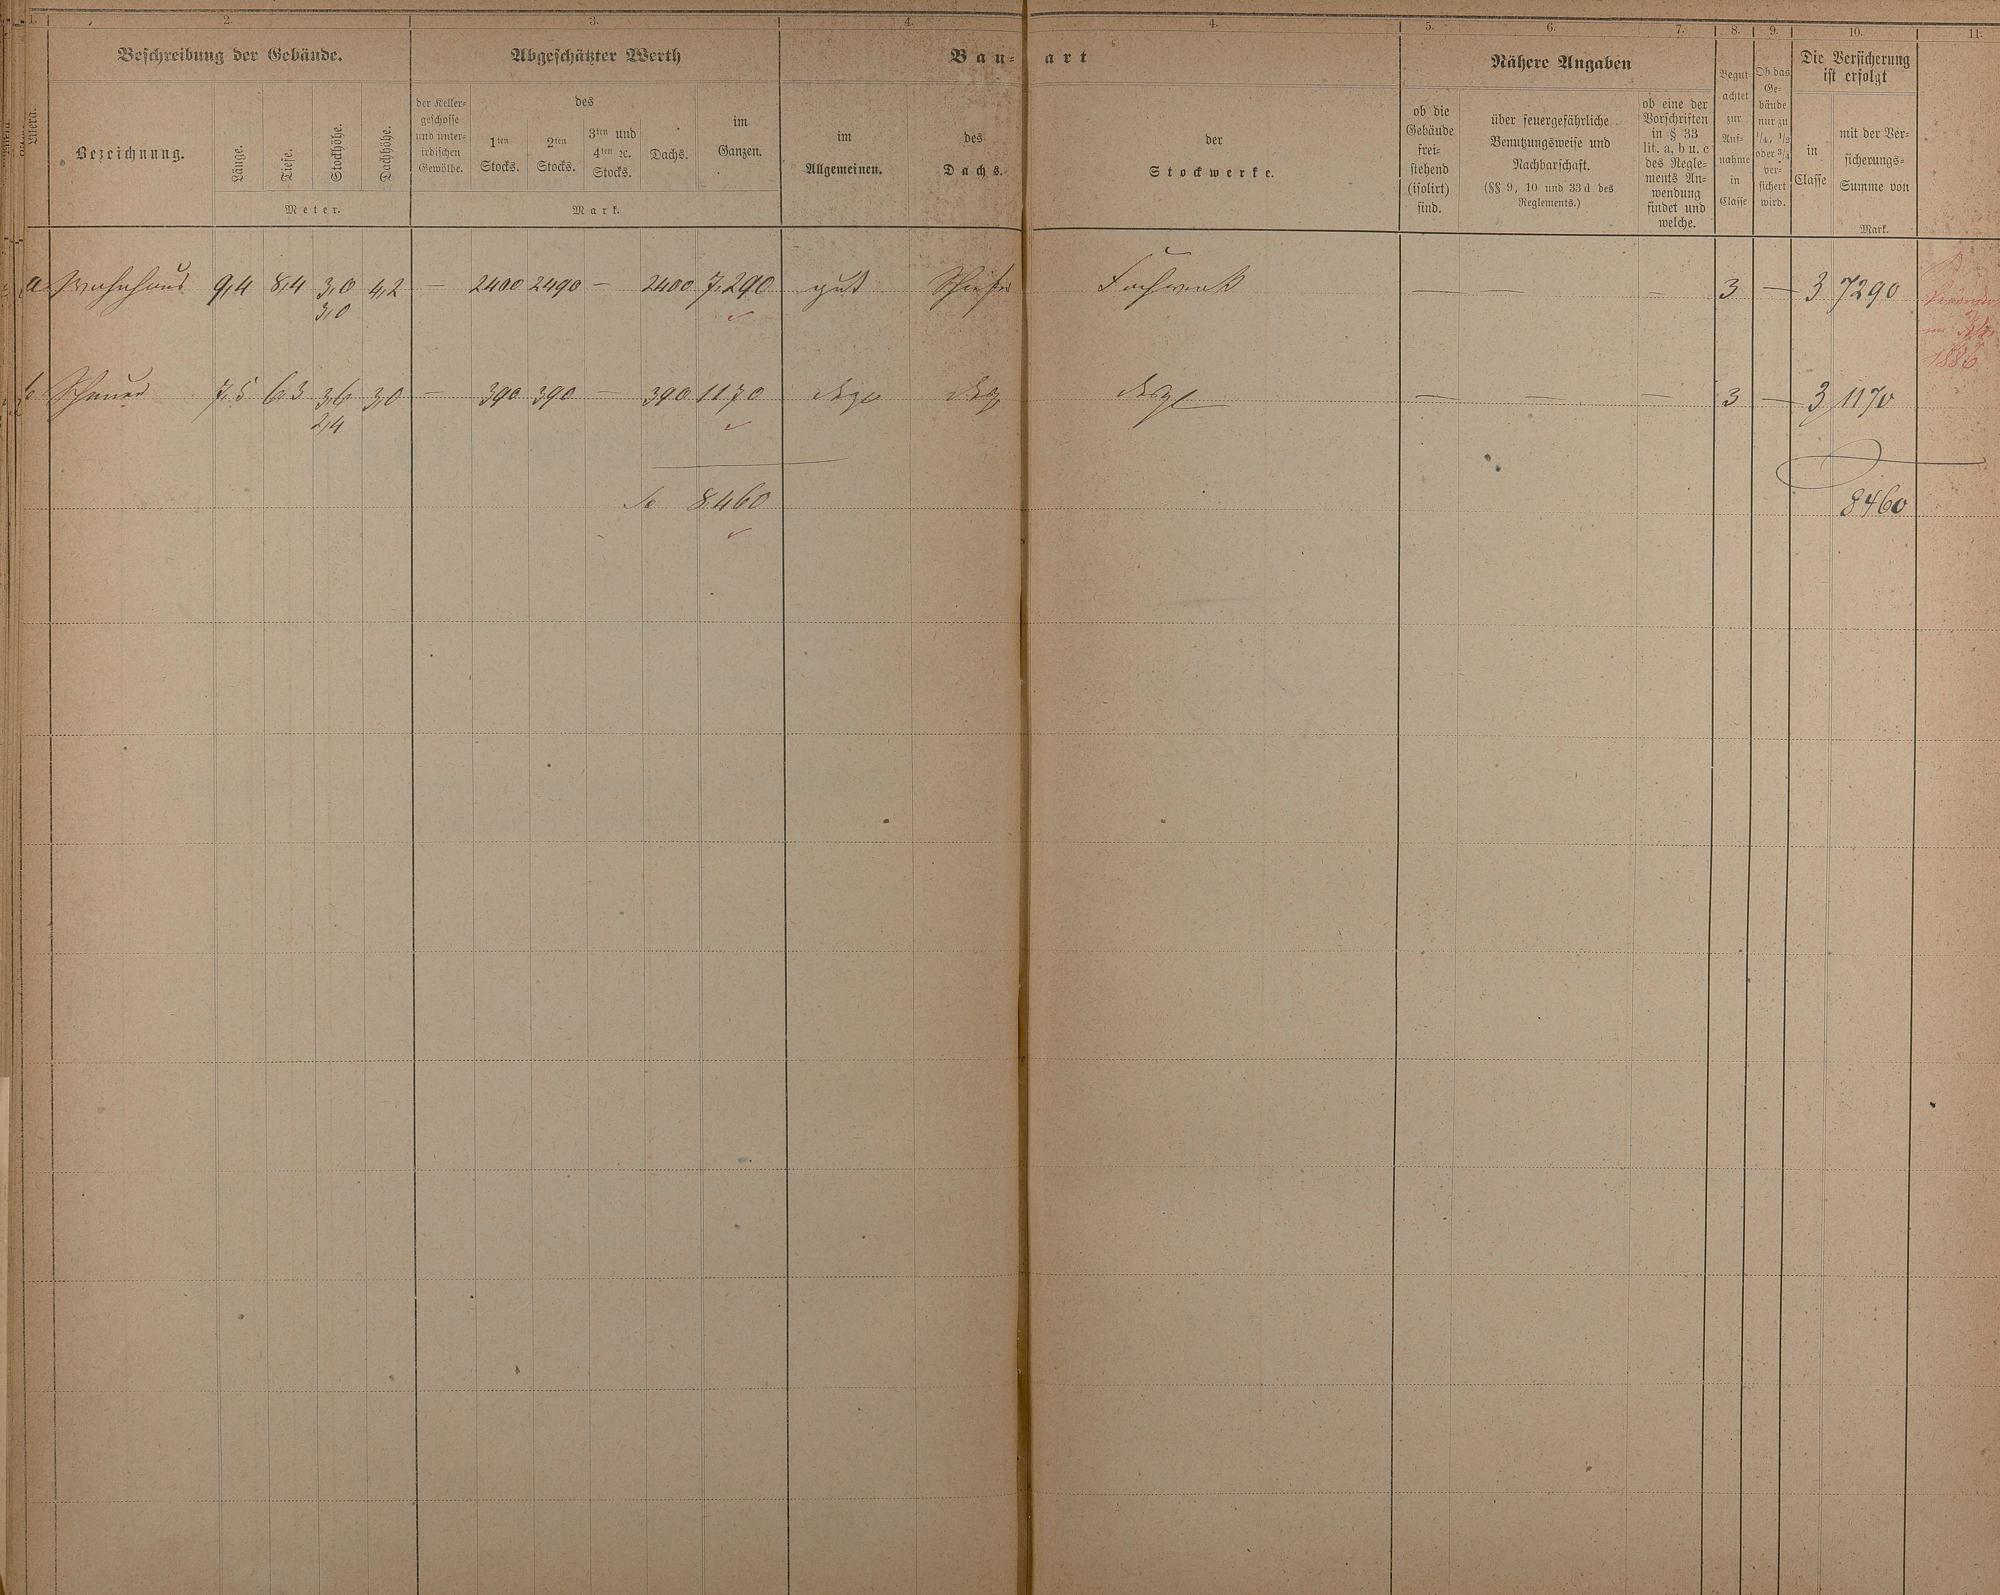 1. 2. 3. 4. 4. 5. 6. 7. 8. 9. 10. 11.
Beschreibung der Gebäude. Abgeschätzter Werth Bau- art Nähere Angaben Die Versicherung
ist erfolgt
Litera.
Bezeichnung.
Länge.
Tiefe.
Stockhöhe.
Dachhöhe.
Meter.
der Keller-
geschosse
und unter-
irdischen
Gewölbe.
des
1ten
Stocks.
2ten
Stocks.
3ten und
4ten ꝛc.
Stocks.
Dachs.
im
Ganzen.
Mark.
im
Allgemeinen.
des
Dachs.
der
Stockwerke.
ob die
Gebäude
frei-
stehend
(isolirt)
sind.
über feuergefährliche
Benutzungsweise und
Nachbarschaft.
(§§ 9, 10 und 33 d des
Reglements.)
ob eine der
Vorschriften
in § 33
lit. a, b u. c
des Regle-
ments An-
wendung
findet und
welche.
Begut
achtet
zur
Auf-
nahme
in
Classe
Ob das
Ge-
bäude
nur zu
1/4, 1/2
oder 3/4
ver-
sichert
wird.
in
Classe
mit der Ver-
sicherungs-
Summe von
Mark.
a Wohnhaus 9,4 8,4 3,0 4,2 — 2400 2490 — 2400 7,290 gut Schiefer Fachwerk — — — 3 — 3 7290
3,0
b Scheuer 7,5 6,3 3,6 3,0 — 390 390 — 390 1170 desgl desgl desgl — — — 3 — 3 1170
2,4
1886
Sa 8,460 8460